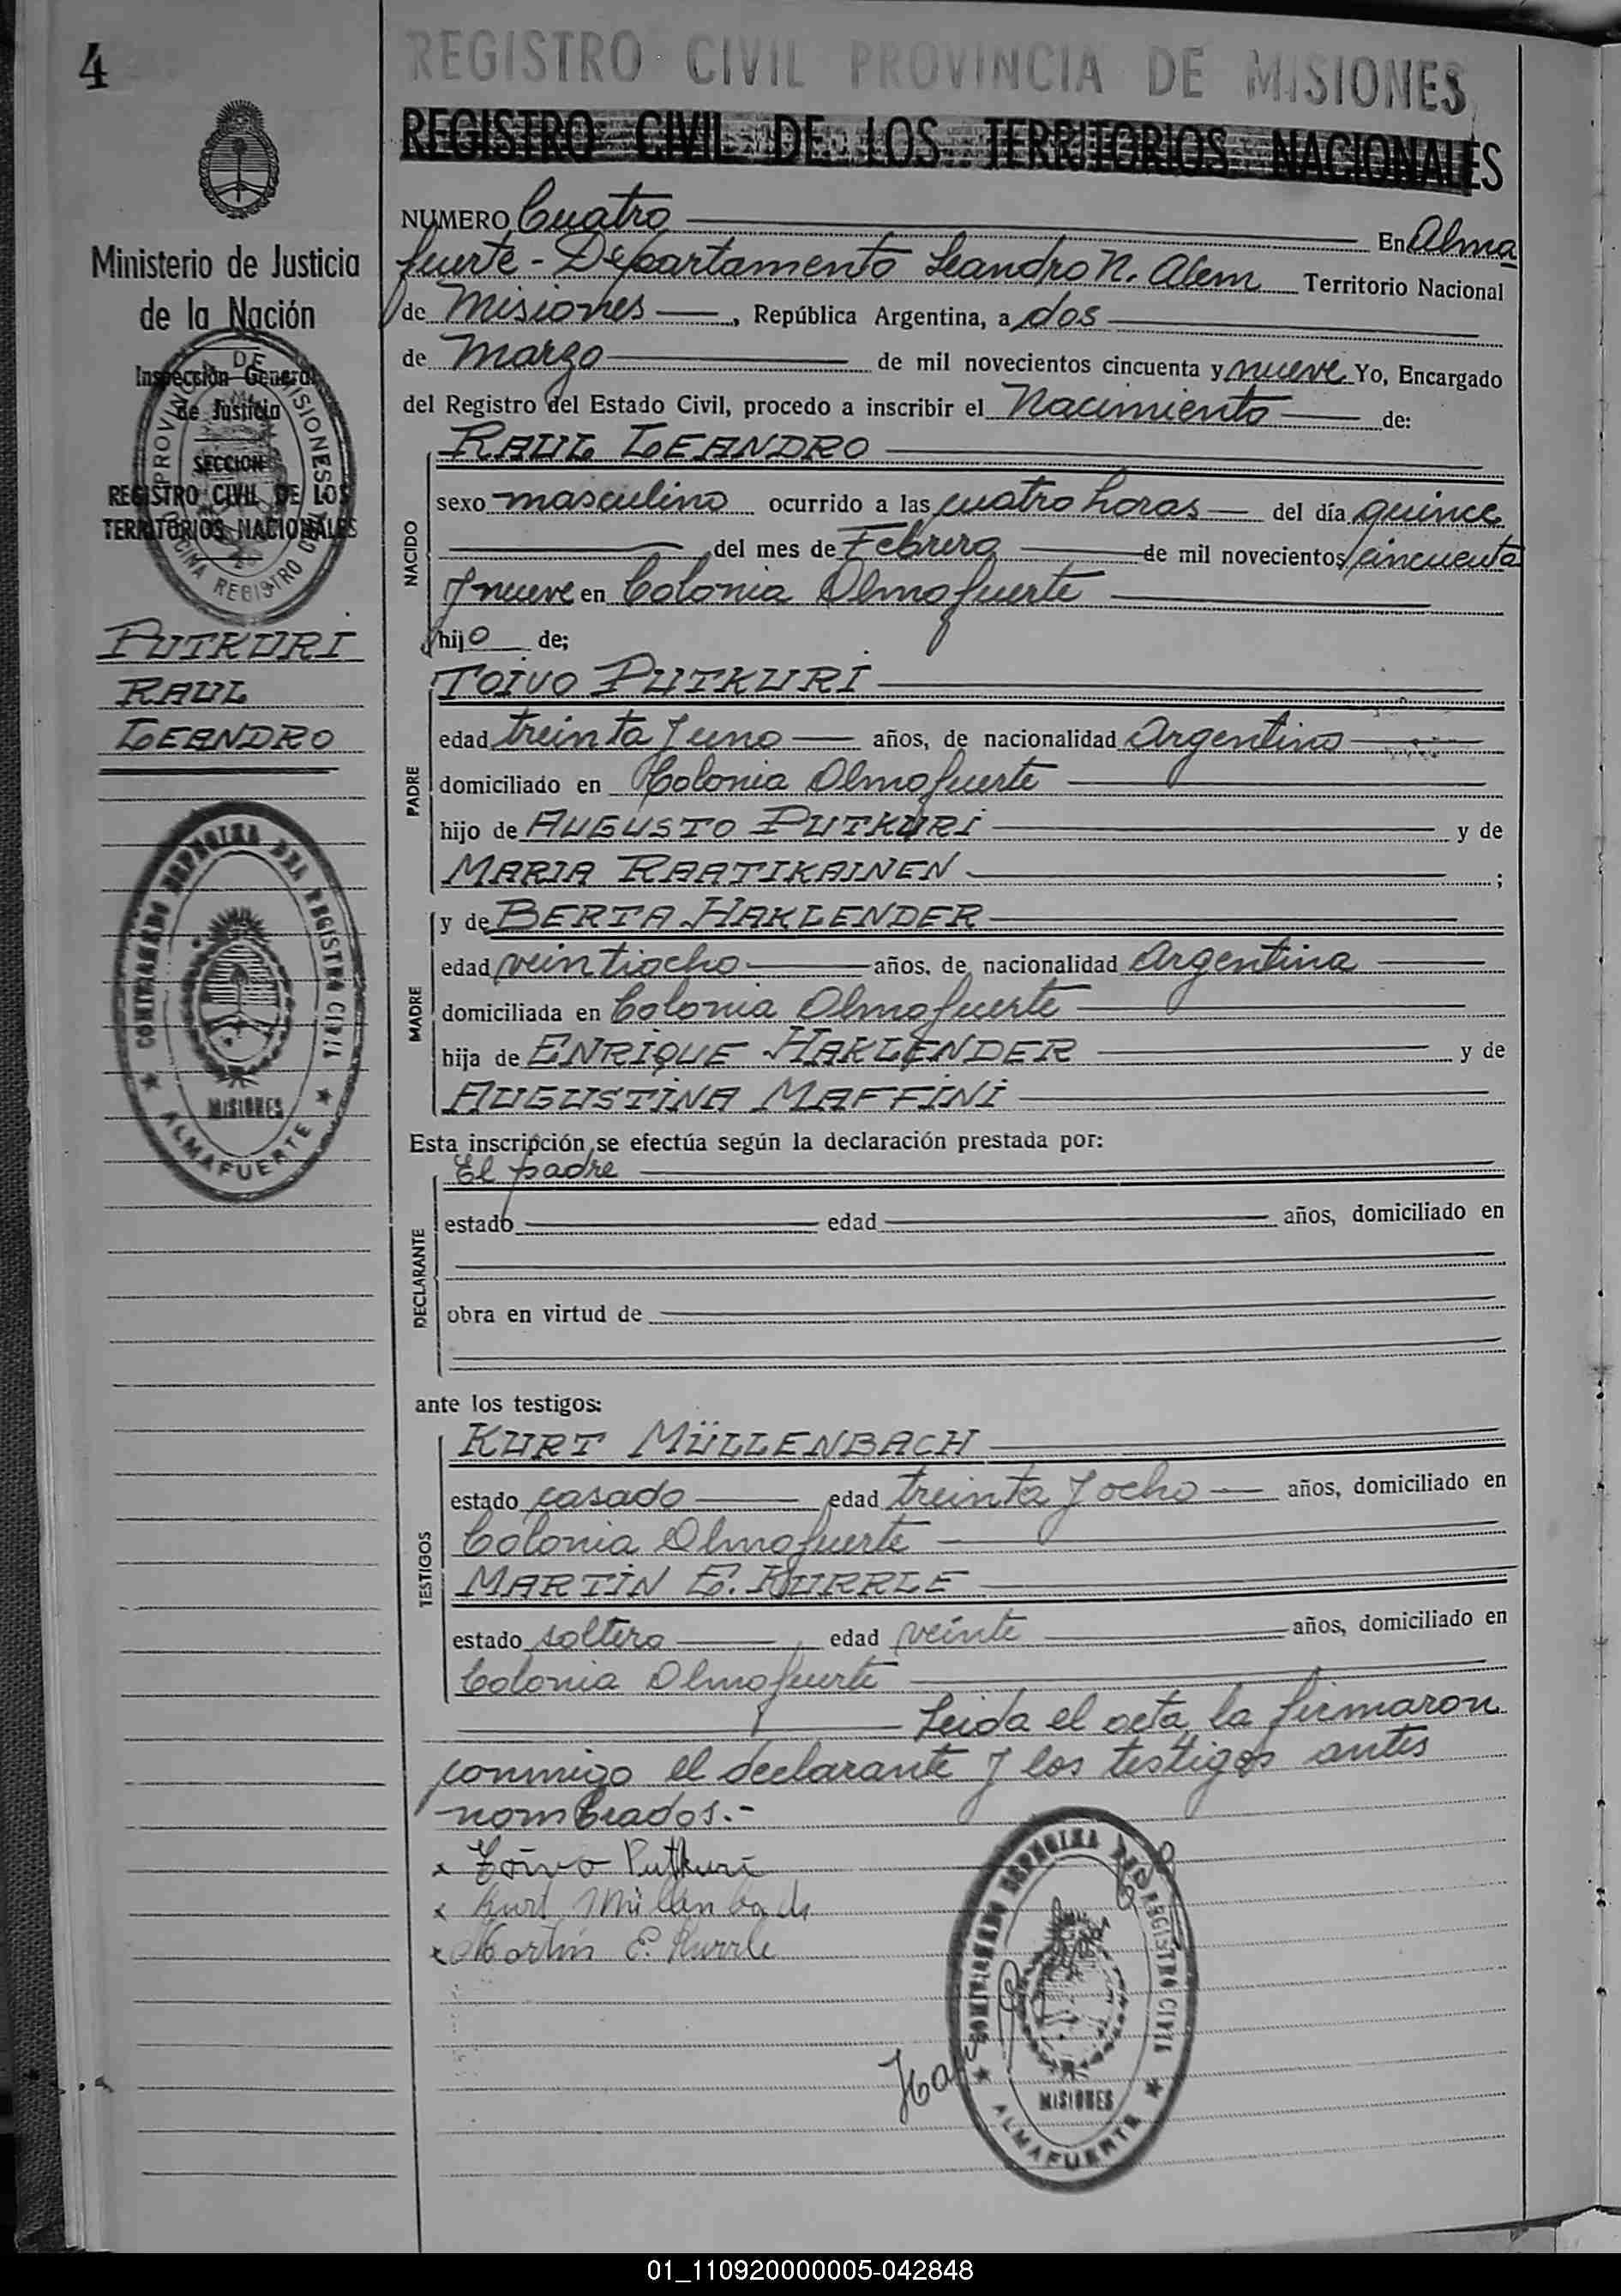 4
REGISTRO CIVIL PROVINCIA DE MISIONES
REGISTRO CIVIL DE LOS TERRITORIOS NACIONALES
Ministerio de Justicia
de la Nación
Inspección General
de Justicia
SECCION
REGISTRO CIVIL DE LOS
TERRITORIOS NACIONALES
PROVINCIA DE MISIONES
OFICINA REGISTRO
PUTKURI
RAUL
LEANDRO
CONTRASEÑADO REGISTRO CIVIL
MISIONES
ALMAFUERTE
NUMERO Cuatro En Alma
fuerte - Departamento Leandro N. Alem Territorio Nacional
de Misiones, República Argentina, a dos
de Marzo de mil novecientos cincuenta y nueve Yo, Encargado
del Registro del Estado Civil, procedo a inscribir el Nacimiento de:
NACIDO
RAUL LEANDRO
sexo masculino ocurrido a las cuatro horas del día quince
del mes de Febrero de mil novecientos cincuenta
y nueve en Colonia Almafuerte
hijo de;
PADRE
TOIVO PUTKURI
edad treinta y uno años, de nacionalidad Argentino
domiciliado en Colonia Almafuerte
hijo de AUGUSTO PUTKURI y de
MARIA RAATIKAINEN ;
MADRE
y de BERTA HAKLENDER
edad veintiocho años, de nacionalidad Argentina
domiciliada en Colonia Almafuerte
hija de ENRIQUE HAKLENDER y de
AUGUSTINA MAFFINI
Esta inscripción se efectúa según la declaración prestada por:
DECLARANTE
El padre
estado edad años, domiciliado en
obra en virtud de
ante los testigos:
TESTIGOS
KURT MÜLLENBACH
estado casado edad treinta y ocho años, domiciliado en
Colonia Almafuerte
MARTIN E. KURRLE
estado soltero edad veinte años, domiciliado en
Colonia Almafuerte
Leida el acta, la firmaron
conmigo el declarante y los testigos antes
nombrados.-
x Toivo Putkuri
x Kurt Müllenbach
x Martin E. Kurrle
REGISTRO CIVIL
MISIONES
ALMAFUERTE
01_110920000005-042848